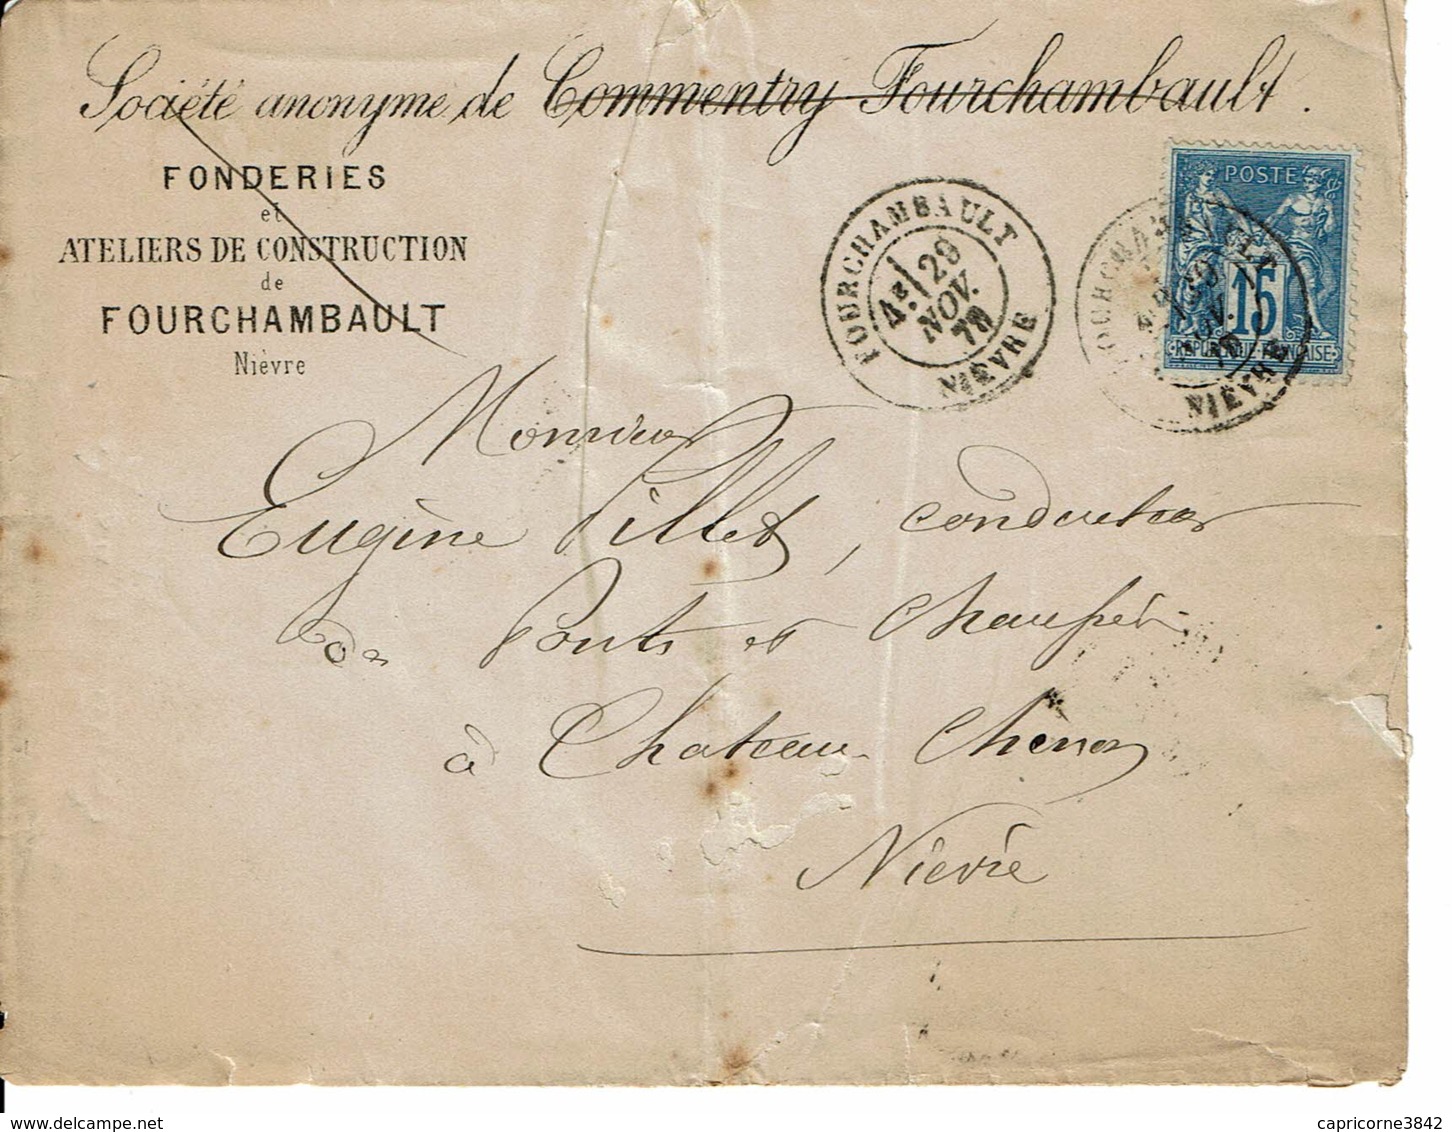 Société anonyme de Commentry Fourchambault.
FONDERIES
et
ATELIERS DE CONSTRUCTION
de
FOURCHAMBAULT
Nièvre
FOURCHAMBAULT
4E
29
NOV.
78
NIÈVRE
POSTE
15
REPUBLIQUE FRANÇAISE
NIÈVRE
Monsieur
Eugène Pillet, conducteur
des Ponts et Chaussées
à Chateau-Chinon
Nièvre
capricorne3842